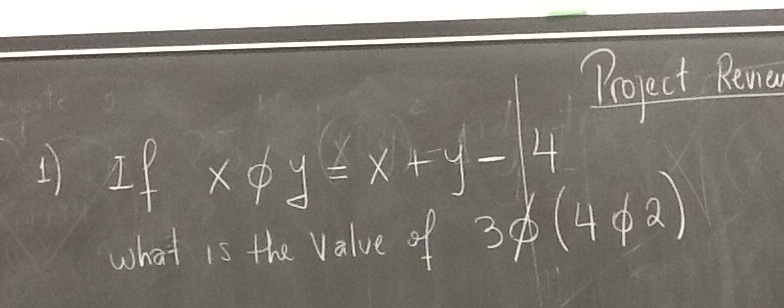 Project Review
1) If x ϕ y = x + y - 4
what is the value of 3ϕ(4ϕ2)